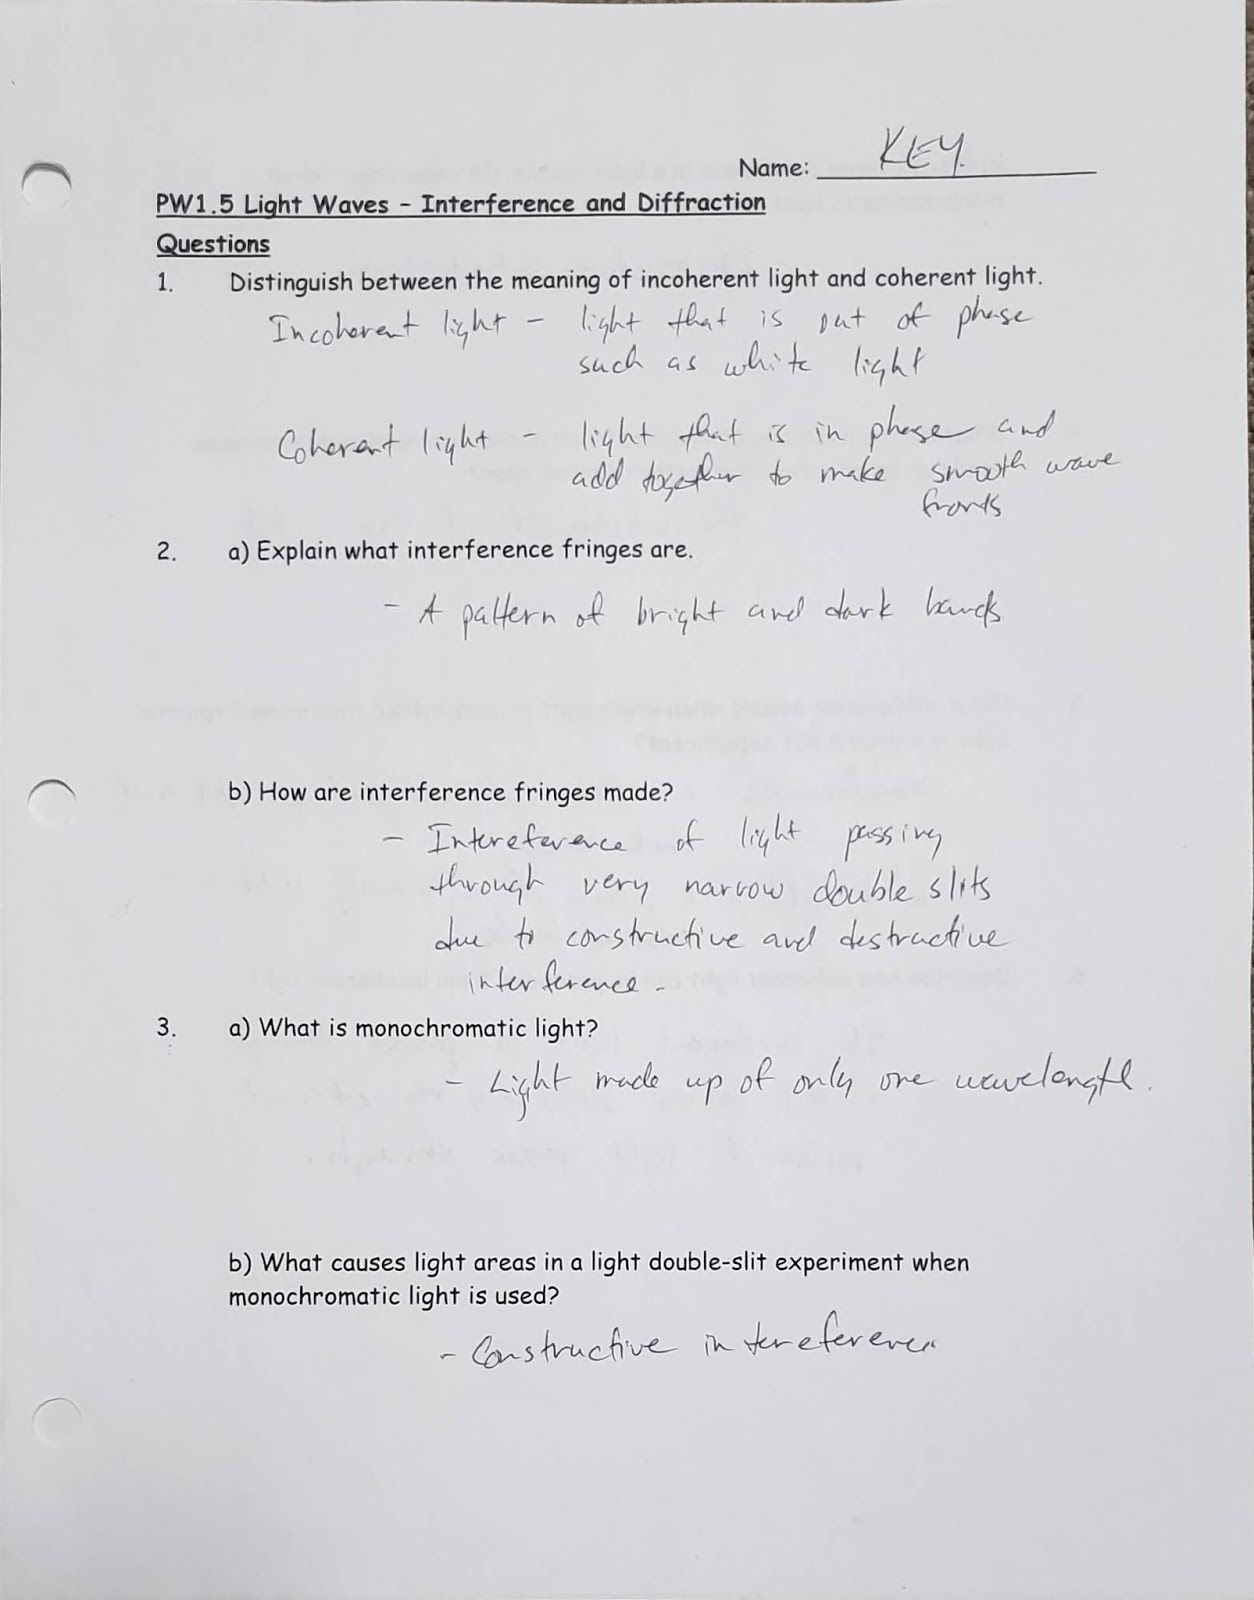 Name: KEY.
PW1.5 Light Waves – Interference and Diffraction
Questions
1. Distinguish between the meaning of incoherent light and coherent light.
Incoherent light – light that is out of phase
such as white light
Coherent light – light that is in phase and
add together to make smooth wave
fronts
2. a) Explain what interference fringes are.
- A pattern of bright and dark bands
b) How are interference fringes made?
- Intereference of light passing
through very narrow double slits
due to constructive and destructive
interference.
3. a) What is monochromatic light?
- Light made up of only one wavelength.
b) What causes light areas in a light double-slit experiment when
monochromatic light is used?
- Constructive intereference